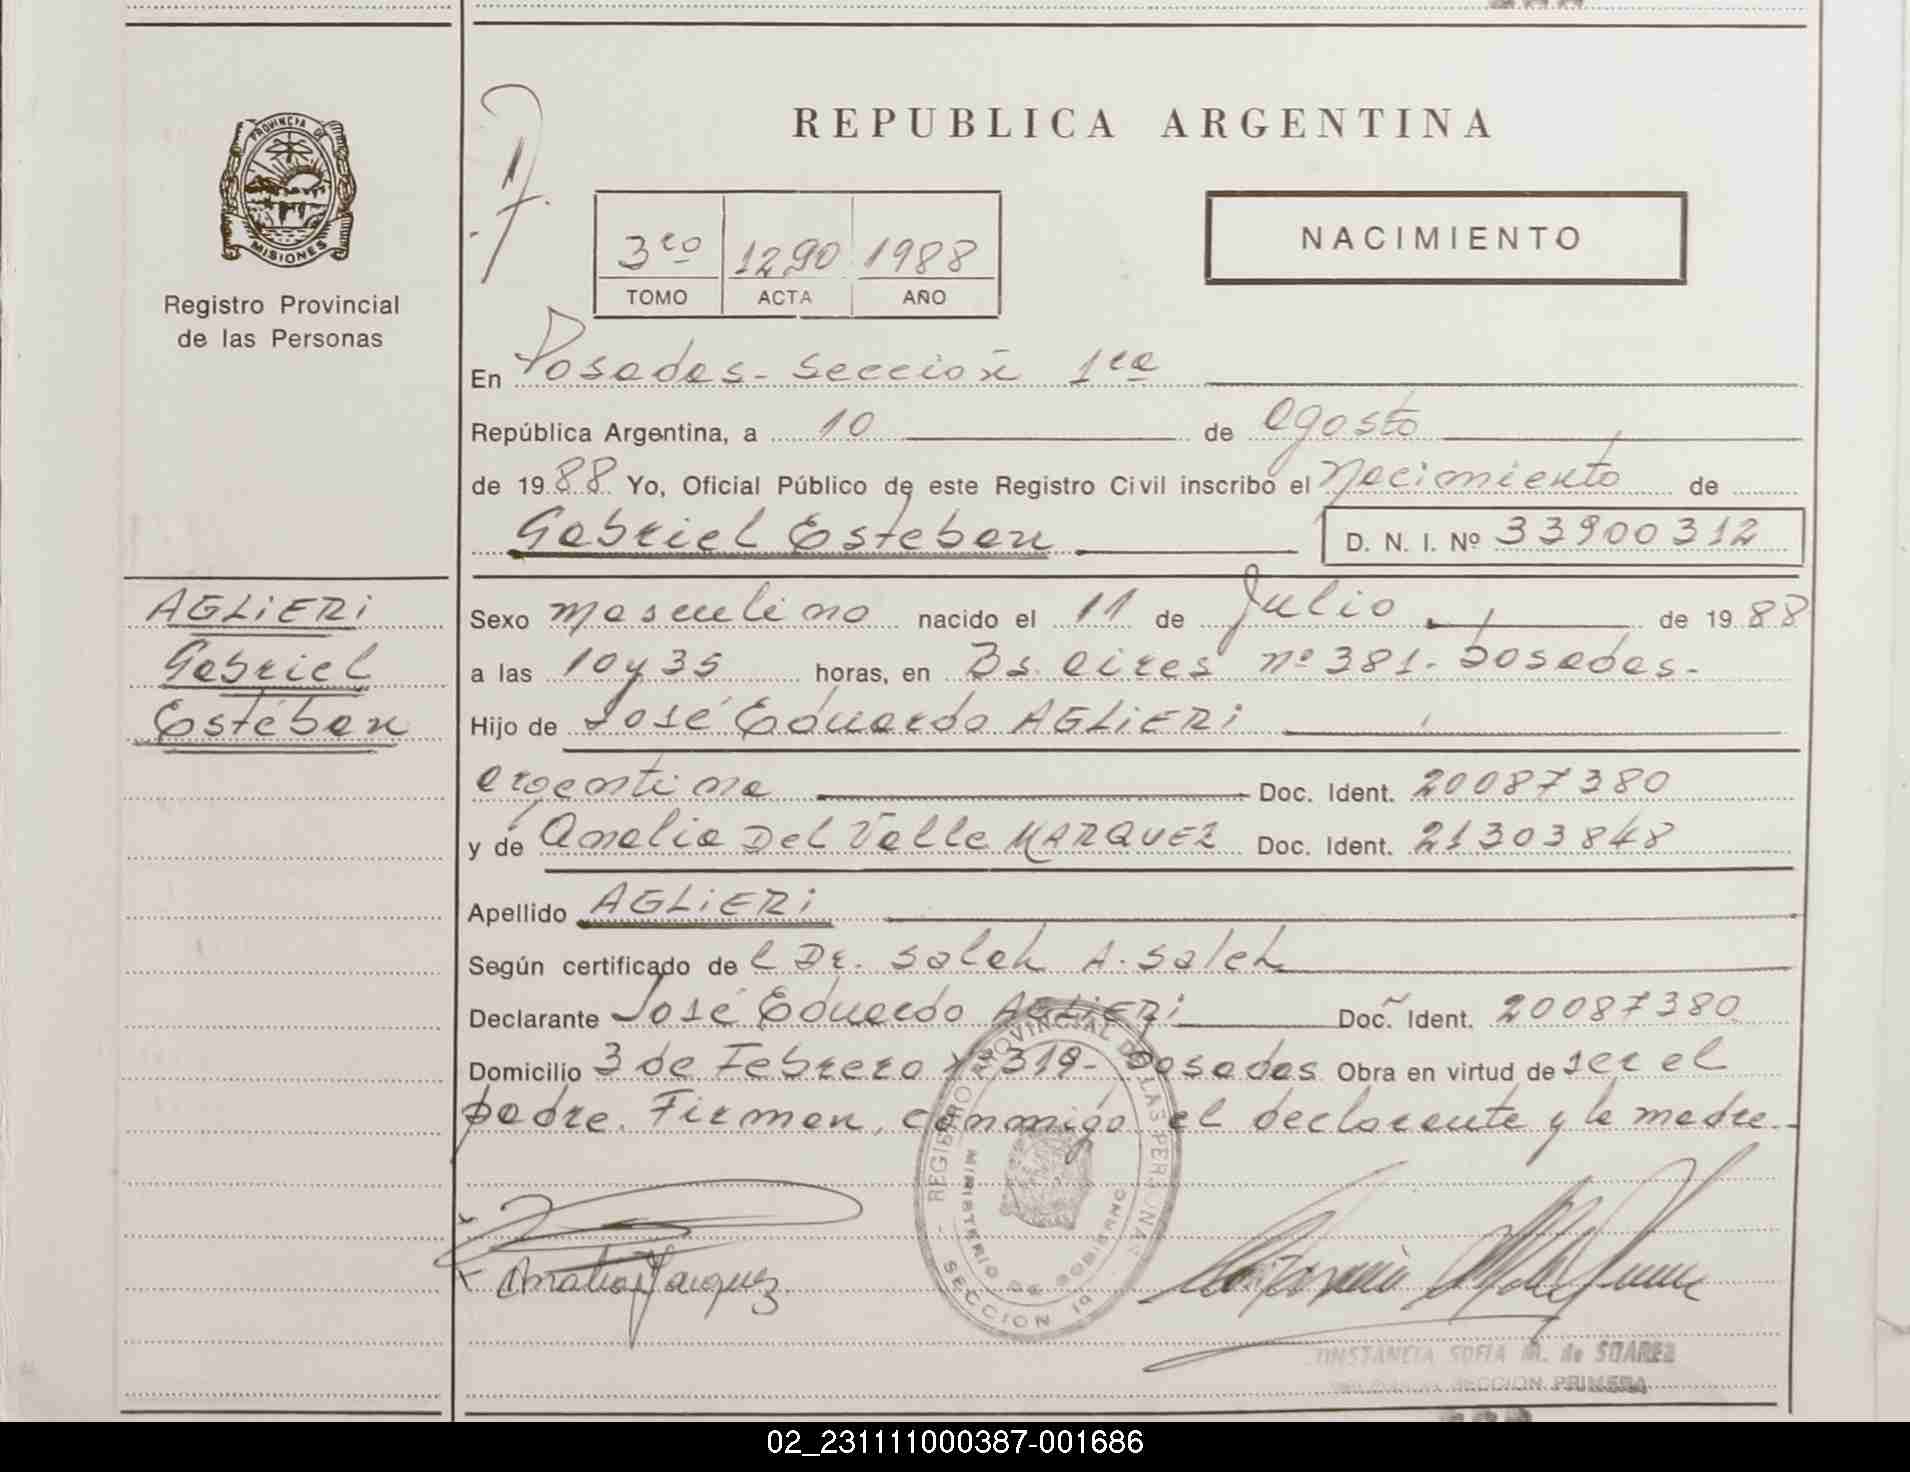 PROVINCIA DE
MISIONES
Registro Provincial
de las Personas
AGLiERi
Gabriel
Esteban
REPUBLICA ARGENTINA
3ro 1290 1988
TOMO ACTA AÑO
NACIMIENTO
En Posadas - sección 1ra
República Argentina, a 10 de agosto
de 1988 Yo, Oficial Público de este Registro Civil inscribo el nacimiento de
Gabriel Esteban D. N. I. Nº 33900312
Sexo masculino nacido el 11 de Julio de 1988
a las 10 y 35 horas, en Bs. aires nº 381. posadas-
Hijo de José Eduardo AGLiERi
argentina Doc. Ident. 20087380
y de Analia Del Valle MARQUEZ Doc. Ident. 21303848
Apellido AGLiERi
Según certificado de l Dr. Saleh A. Saleh
Declarante José Eduardo AGLiERi Doc. Ident. 20087380
Domicilio 3 de Febrero nº 319- posadas Obra en virtud de ser el
padre. Firman, conmigo el declarante y la madre.-
REGISTRO PROVINCIAL DE LAS PERSONAS
MINISTERIO DE GOBIERNO
SECCION 1ª
Analia Marquez
CONSTANCIA SOFIA M. de SUAREZ
SECCION PRIMERA
02_231111000387-001686